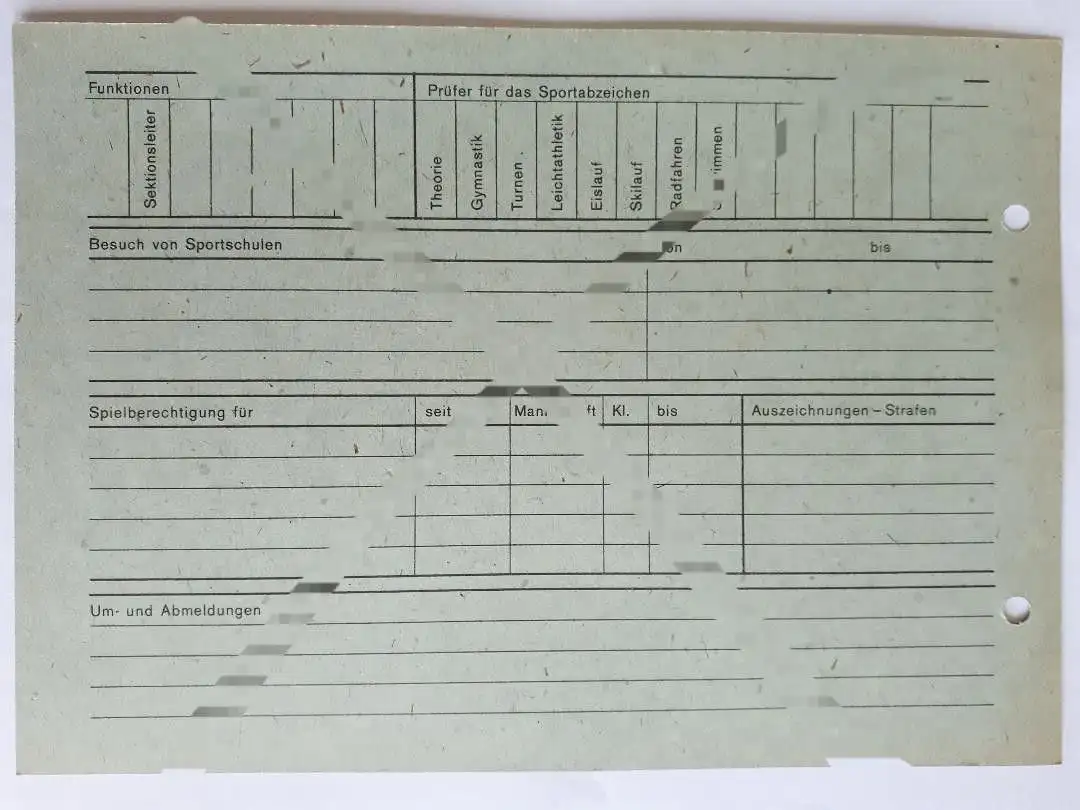 Funktionen
Prüfer für das Sportabzeichen
Sektionsleiter
Theorie
Gymnastik
Turnen
Leichtathletik
Eislauf
Skilauf
Radfahren
Besuch von Sportschulen
bis
Spielberechtigung für seit Kl. bis Auszeichnungen – Strafen
Um- und Abmeldungen